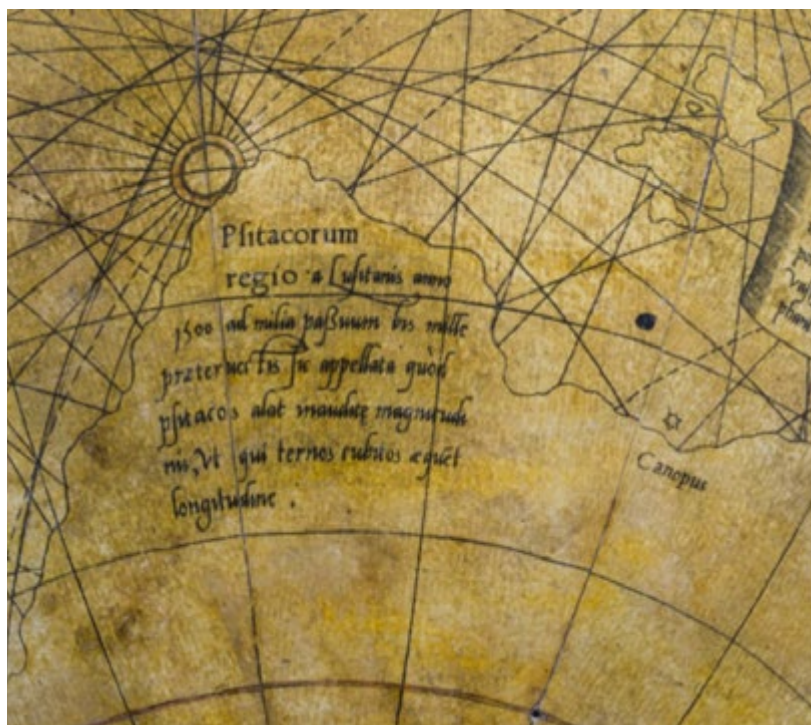 Pſitacorum
regio a Luſitanis anno
1500 ad milia paßuum bis mille
præteruectis ſic appellata quòd
pſitacos alat inauditę magnitudi
nis, Vt qui ternos cubitos æquẽt
longitudine .
Canopus